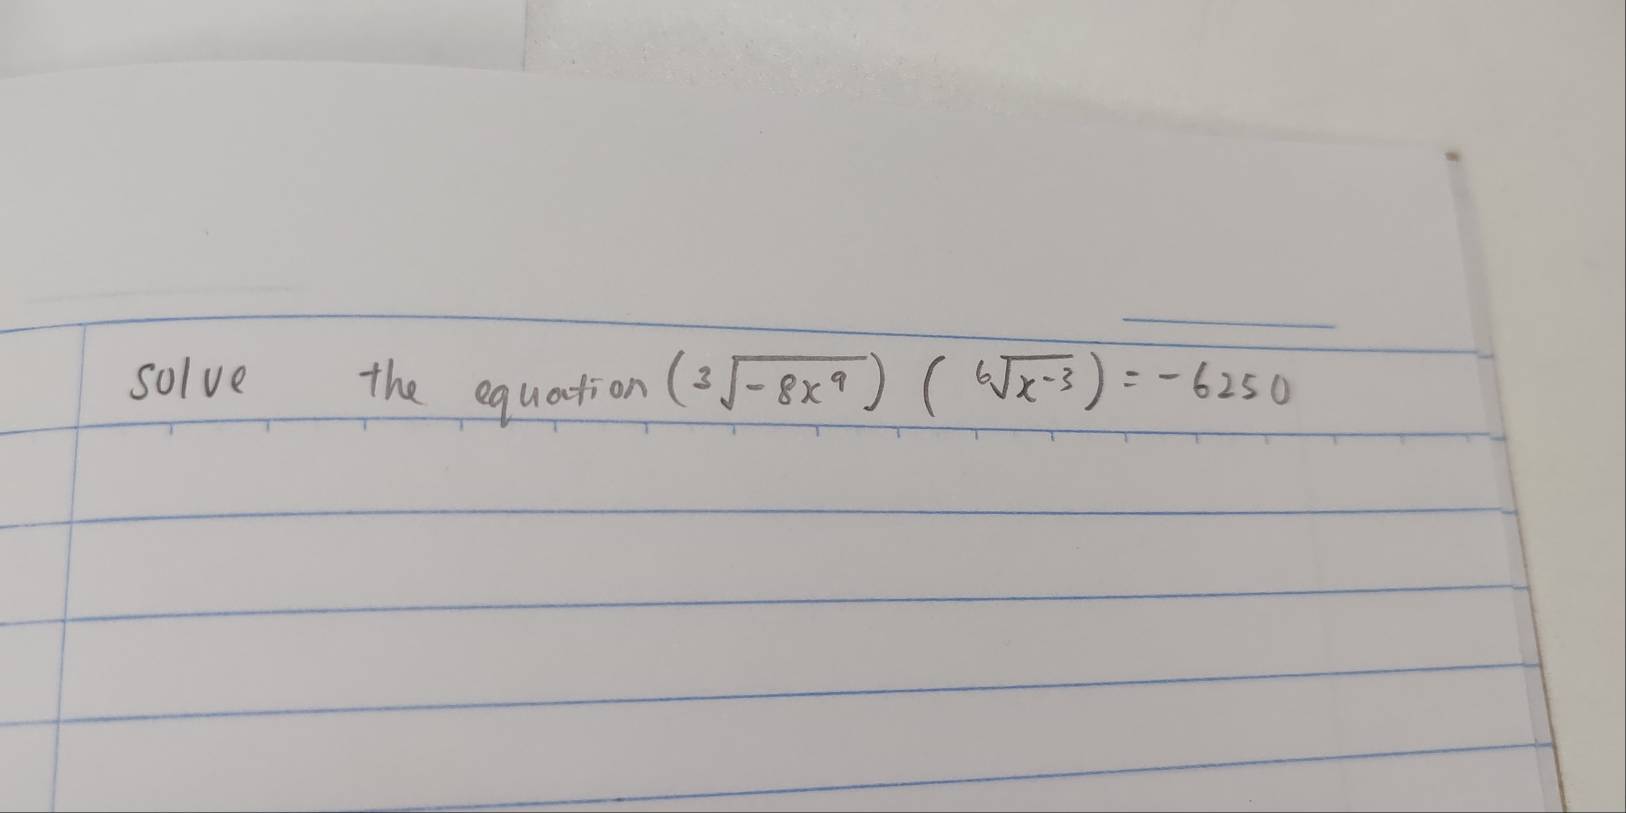 solve the equation (∛-8x⁹) (⁶√x⁻³) = -6250